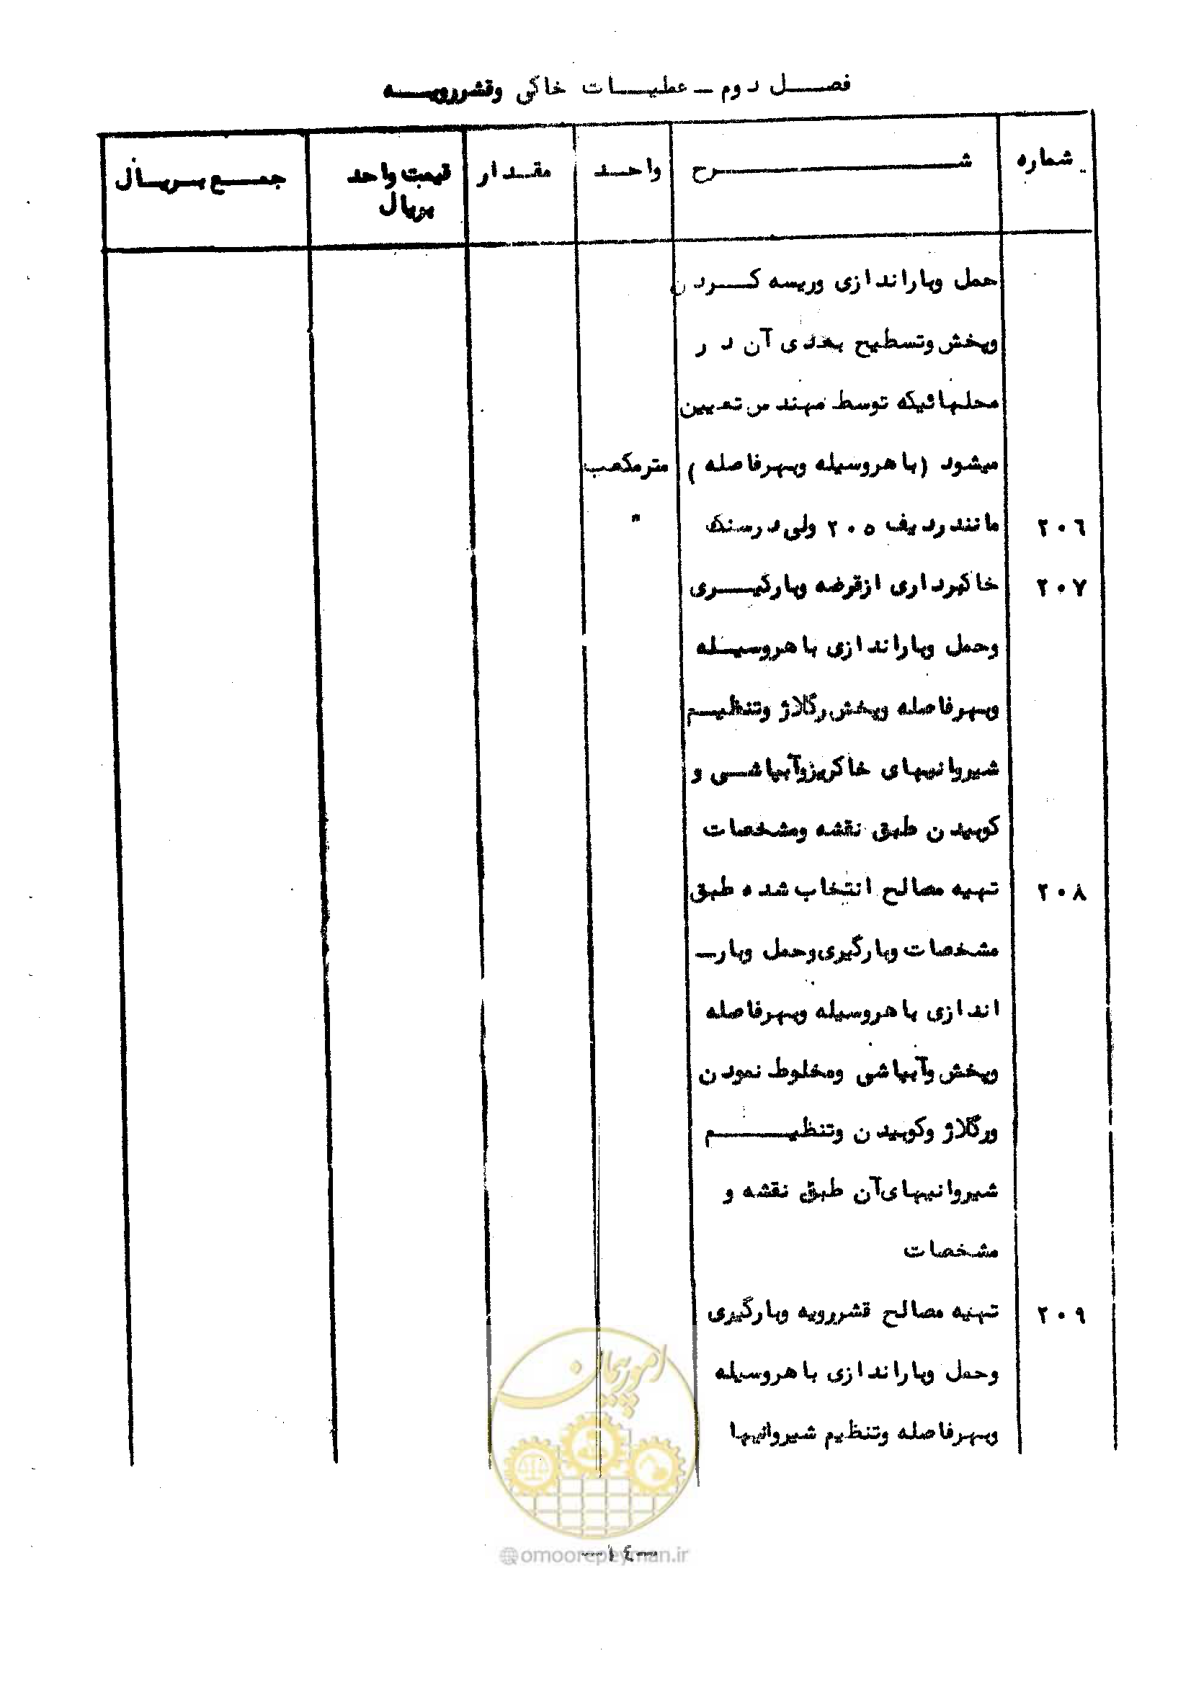 فصل دوم ـ عملیات خاکی وقشررویه
شماره شرح واحد مقدار قیمت واحد بریال جمع بریال
حمل وباراندازی وریسه کردن
وپخش وتسطیح بعدی آن در
محلهائیکه توسط مهندس تعیین
میشود (با هروسیله وبهرفاصله) مترمکعب
۲۰۶ مانند ردیف ۲۰۵ ولی درسنگ "
۲۰۷ خاکبرداری ازقرضه وبارگیری
وحمل وباراندازی با هروسیله
وبهرفاصله وپخش رگلاژ وتنظیم
شیروانیهای خاکریزوآبپاشی و
کوبیدن طبق نقشه ومشخصات
۲۰۸ تهیه مصالح انتخاب شده طبق
مشخصات وبارگیری وحمل وبارـ
اندازی با هروسیله وبهرفاصله
وپخش وآبپاشی ومخلوط نمودن
ورگلاژ وکوبیدن وتنظیم
شیروانیهای آن طبق نقشه و
مشخصات
۲۰۹ تهیه مصالح قشررویه وبارگیری
وحمل وباراندازی با هروسیله
وبهرفاصله وتنظیم شیروانیها
امور پیمان
@omoorepeyman.ir
-۱٤-